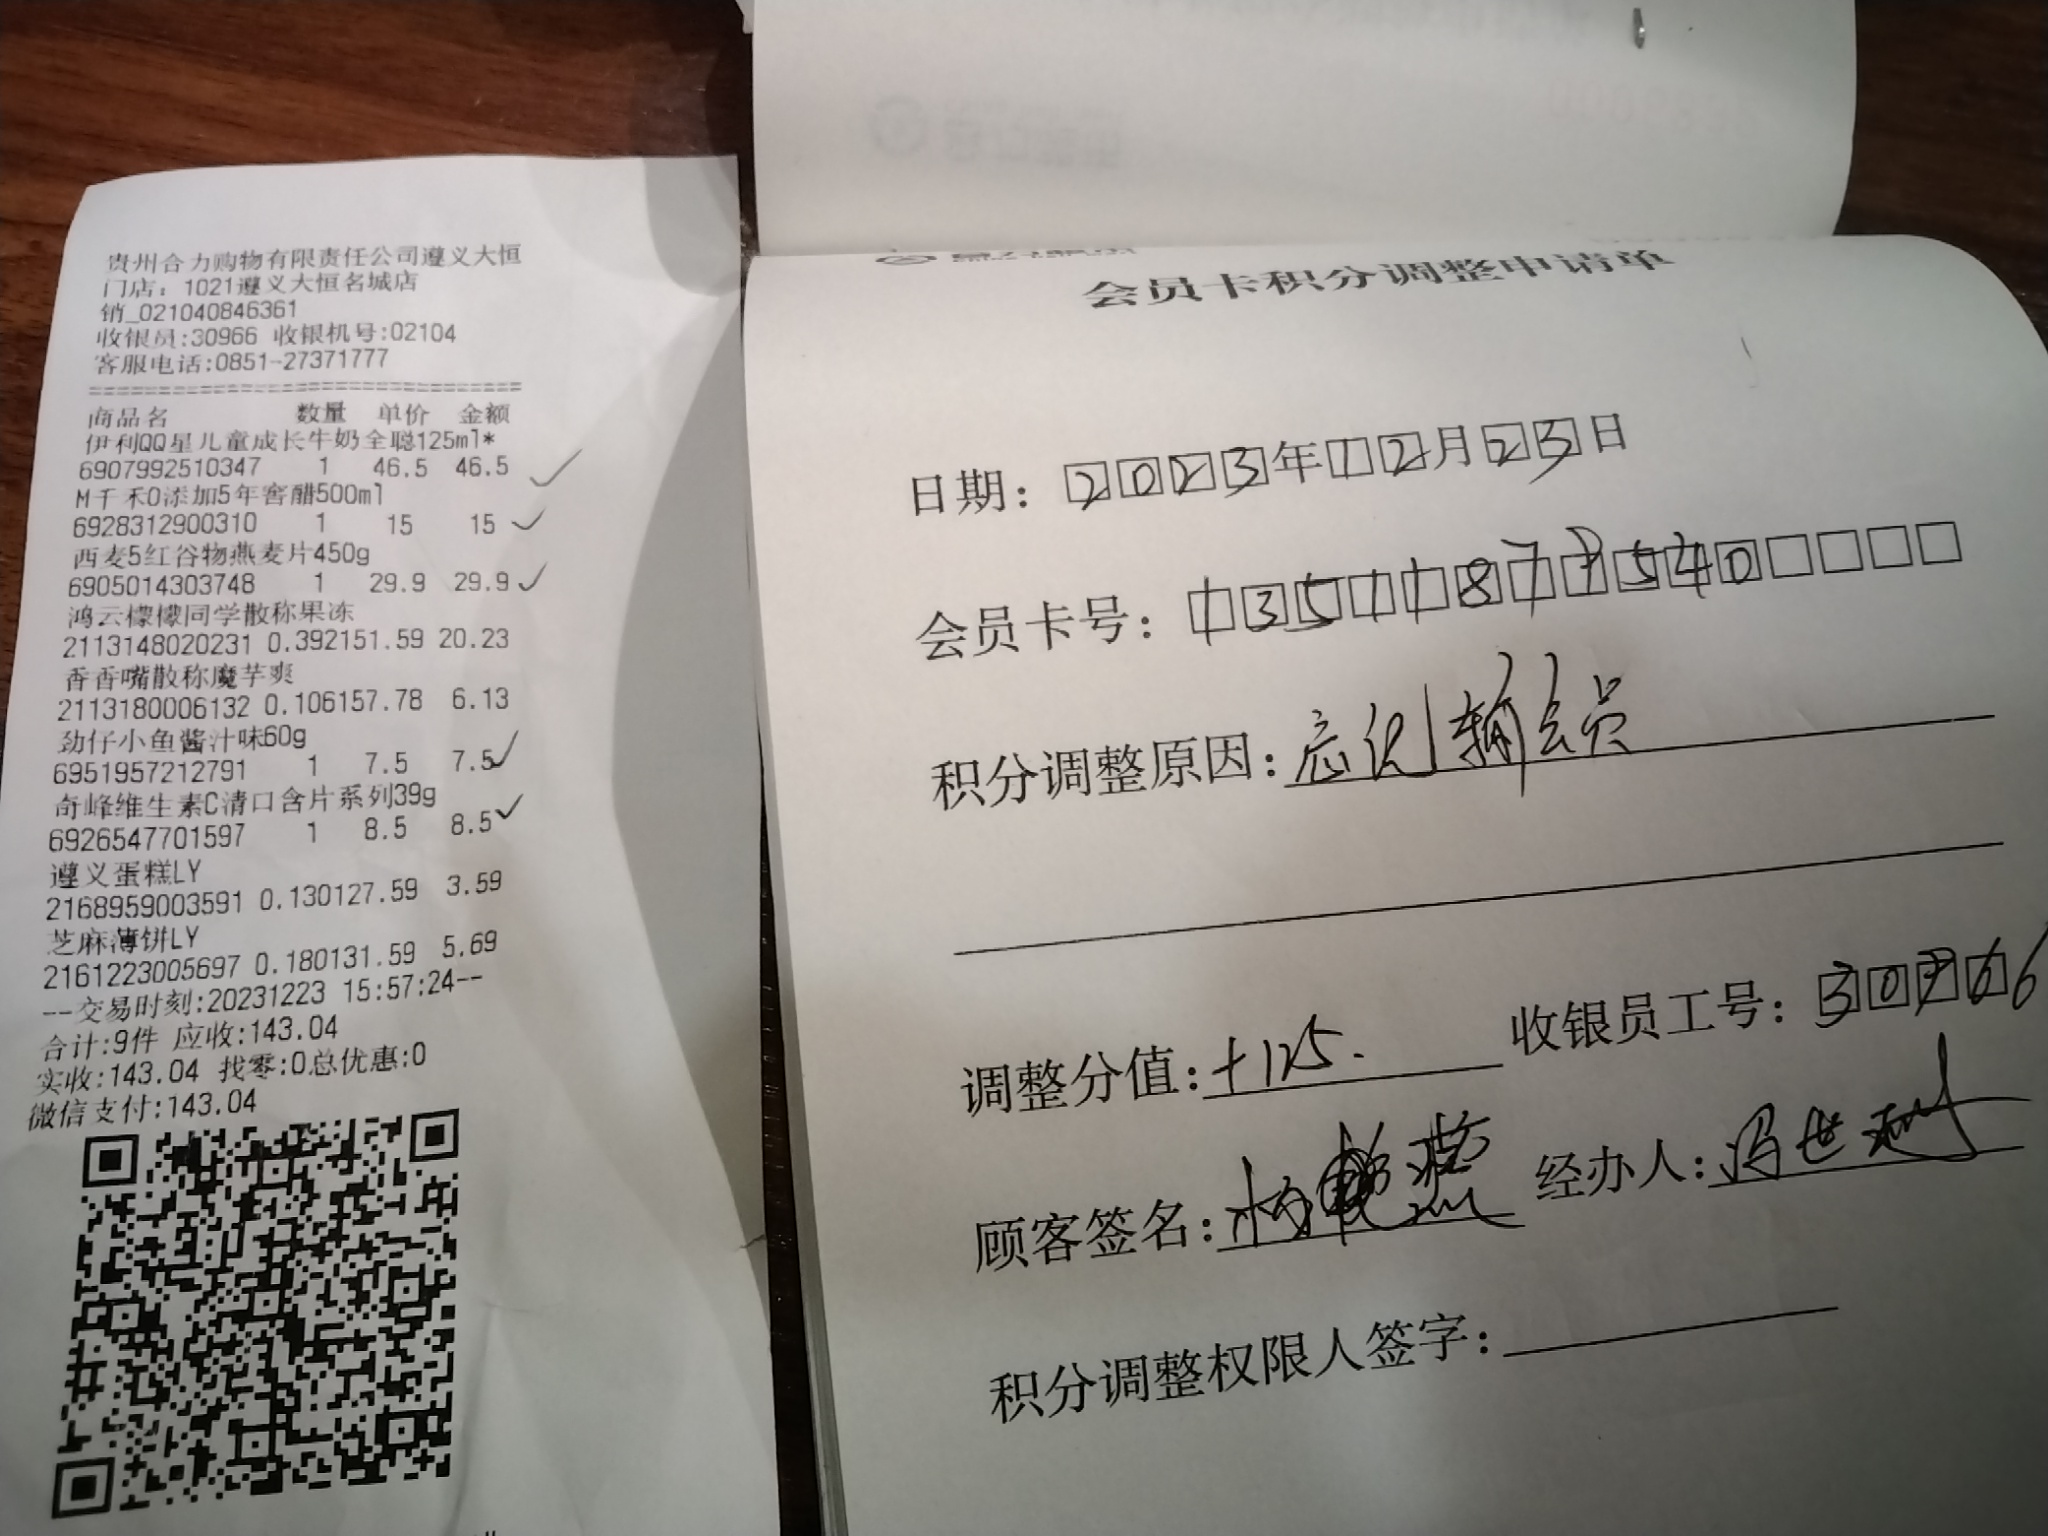 贵州合力购物有限责任公司遵义大恒
门店：1021遵义大恒名城店
销_021040846361
收银员:30966 收银机号:02104
客服电话:0851-27371777
================================
商品名 数量 单价 金额
伊利QQ星儿童成长牛奶全聪125ml*
6907992510347 1 46.5 46.5
M千禾0添加5年窖醋500ml
6928312900310 1 15 15
西麦5红谷物燕麦片450g
6905014303748 1 29.9 29.9
鸿云檬檬同学散称果冻
2113148020231 0.392151.59 20.23
香香嘴散称魔芋爽
2113180006132 0.106157.78 6.13
劲仔小鱼酱汁味60g
6951957212791 1 7.5 7.5
奇峰维生素C清口含片系列39g
6926547701597 1 8.5 8.5
遵义蛋糕LY
2168959003591 0.130127.59 3.59
芝麻薄饼LY
2161223005697 0.180131.59 5.69
--交易时刻:20231223 15:57:24--
合计:9件 应收:143.04
实收:143.04 找零:0总优惠:0
微信支付:143.04
会员卡积分调整申请单
日期：2023年12月23日
会员卡号：13511877540
积分调整原因：忘记输会员
调整分值：+125. 收银员工号：30966
顾客签名： 经办人：冯世
积分调整权限人签字：